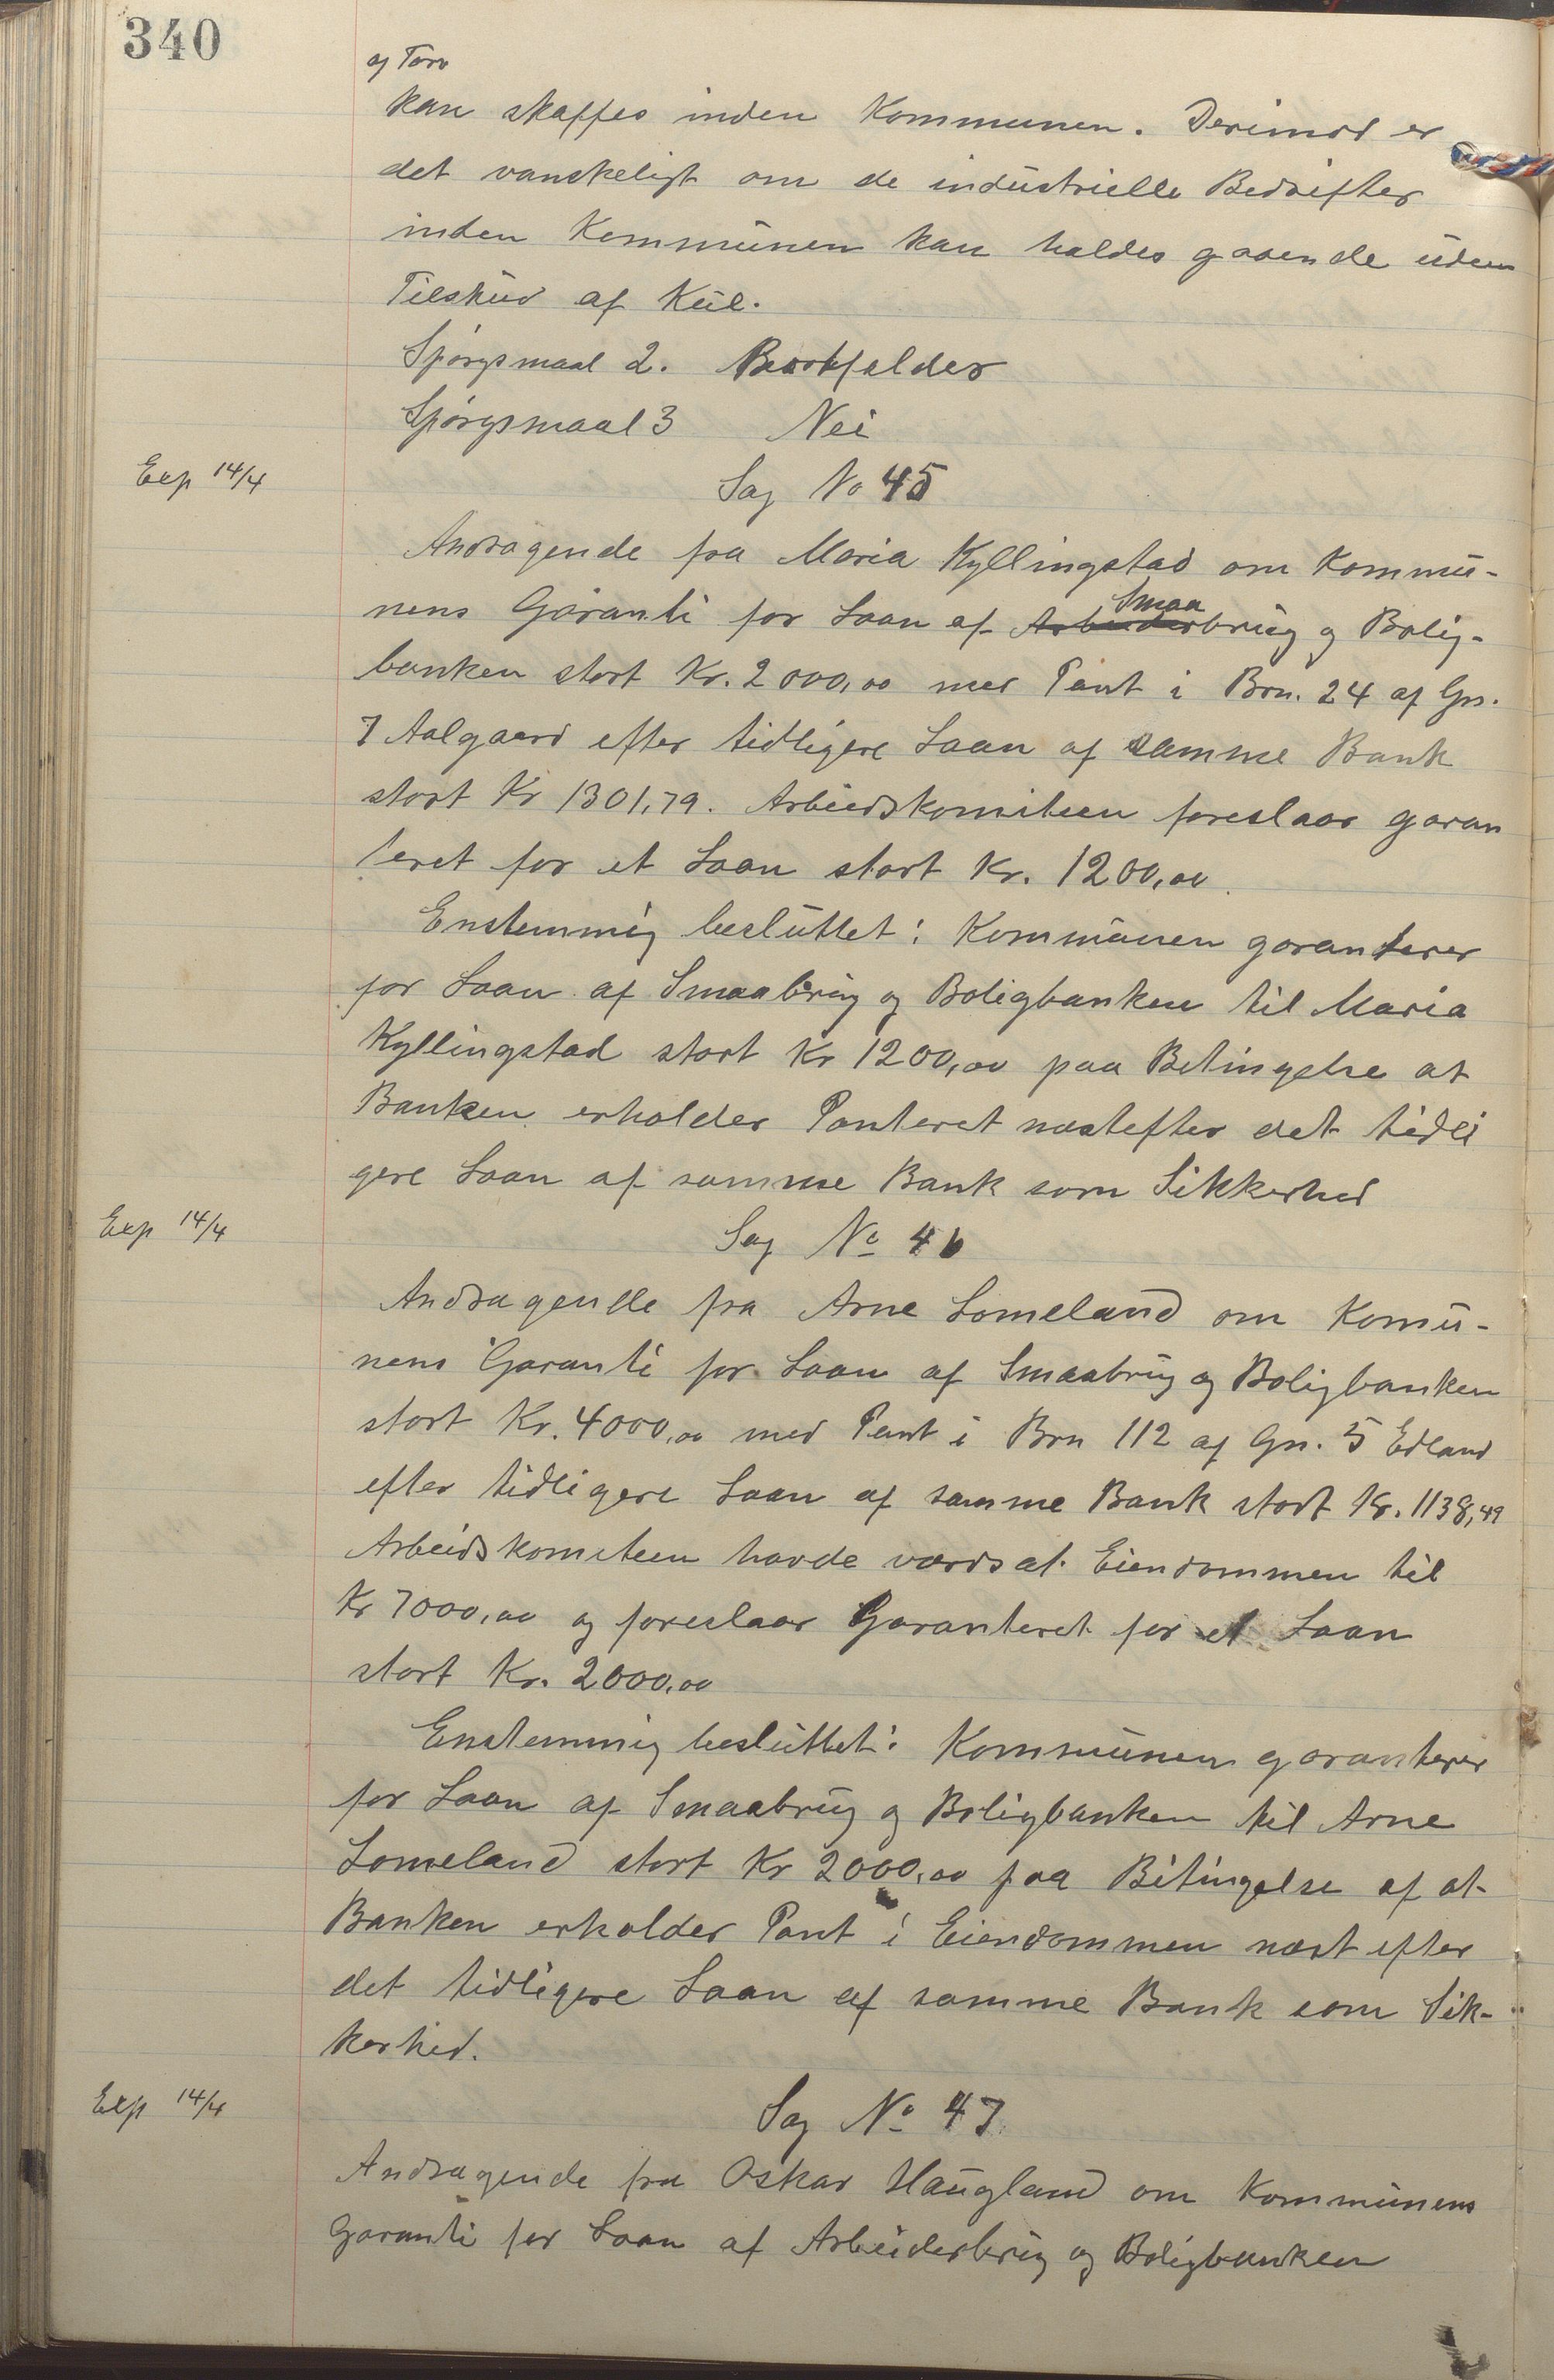 340
og Torv
kan skaffes inden Kommunen. Derimod er
det vanskeligt om de industrielle Bedrifter
inden Kommunen kan holdes gaaende uden
Tilskud af Kul.
Spørgsmaal 2. Bortfalder
Spørgsmaal 3 Nei
Exp 14/4
Sag No 45
Andragende fra Maria Kyllingstad om Kommu-
nens Garanti for Laan af Arbeider Smaabrug og Bolig-
banken stort Kr. 2000,00 med Pant i Brn. 24 af Gn.
7 Aalgaard efter tidligere Laan af samme Bank
stort Kr 1301,79. Arbeidskomiteen foreslaar garan
teret for et Laan stort Kr. 1200,00.
Enstemmig besluttet: Kommunen garanterer
for Laan af Smaabrug og Boligbanken til Maria
Kyllingstad stort Kr 1200,00 paa Betingelse at
Banken erholder Panteret næstefter det tidli
gere Laan af samme Bank som Sikkerhed
Exp 14/4
Sag No 46
Andragende fra Arne Lomeland om Komu-
nens Garanti for Laan af Smaabrug og Boligbanken
stort Kr. 4000,00 med Pant i Brn 112 af Gn. 5 Edland
efter tidligere Laan af samme Bank stort Kr. 1138,49
Arbeidskomiteen havde værdsat Eiendommen til
Kr 7000,00 og foreslaar Garanteret for et Laan
stort Kr. 2000,00
Enstemmig besluttet: Kommunen garanterer
for Laan af Smaabrug og Boligbanken til Arne
Lomeland stort Kr 2000,00 paa Betingelse af at
Banken erholder Pant i Eiendommen næst efter
det tidligere Laan af samme Bank som Sik-
kerhed.
Exp 14/4
Sag No 47
Andragende fra Oskar Haugland om Kommunens
Garanti for Laan af Arbeiderbrug og Boligbanken